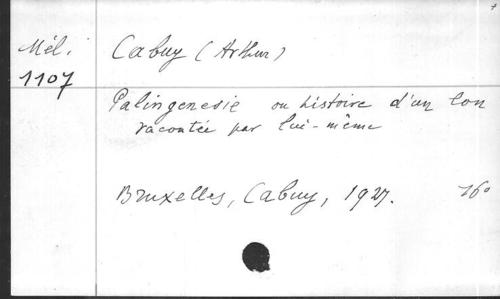 Mél. Cabuy (Arthur)
1107
Palingenesie ou histoire d'un con
racontée par lui-même
Bruxelles, Cabuy, 1927. 16°